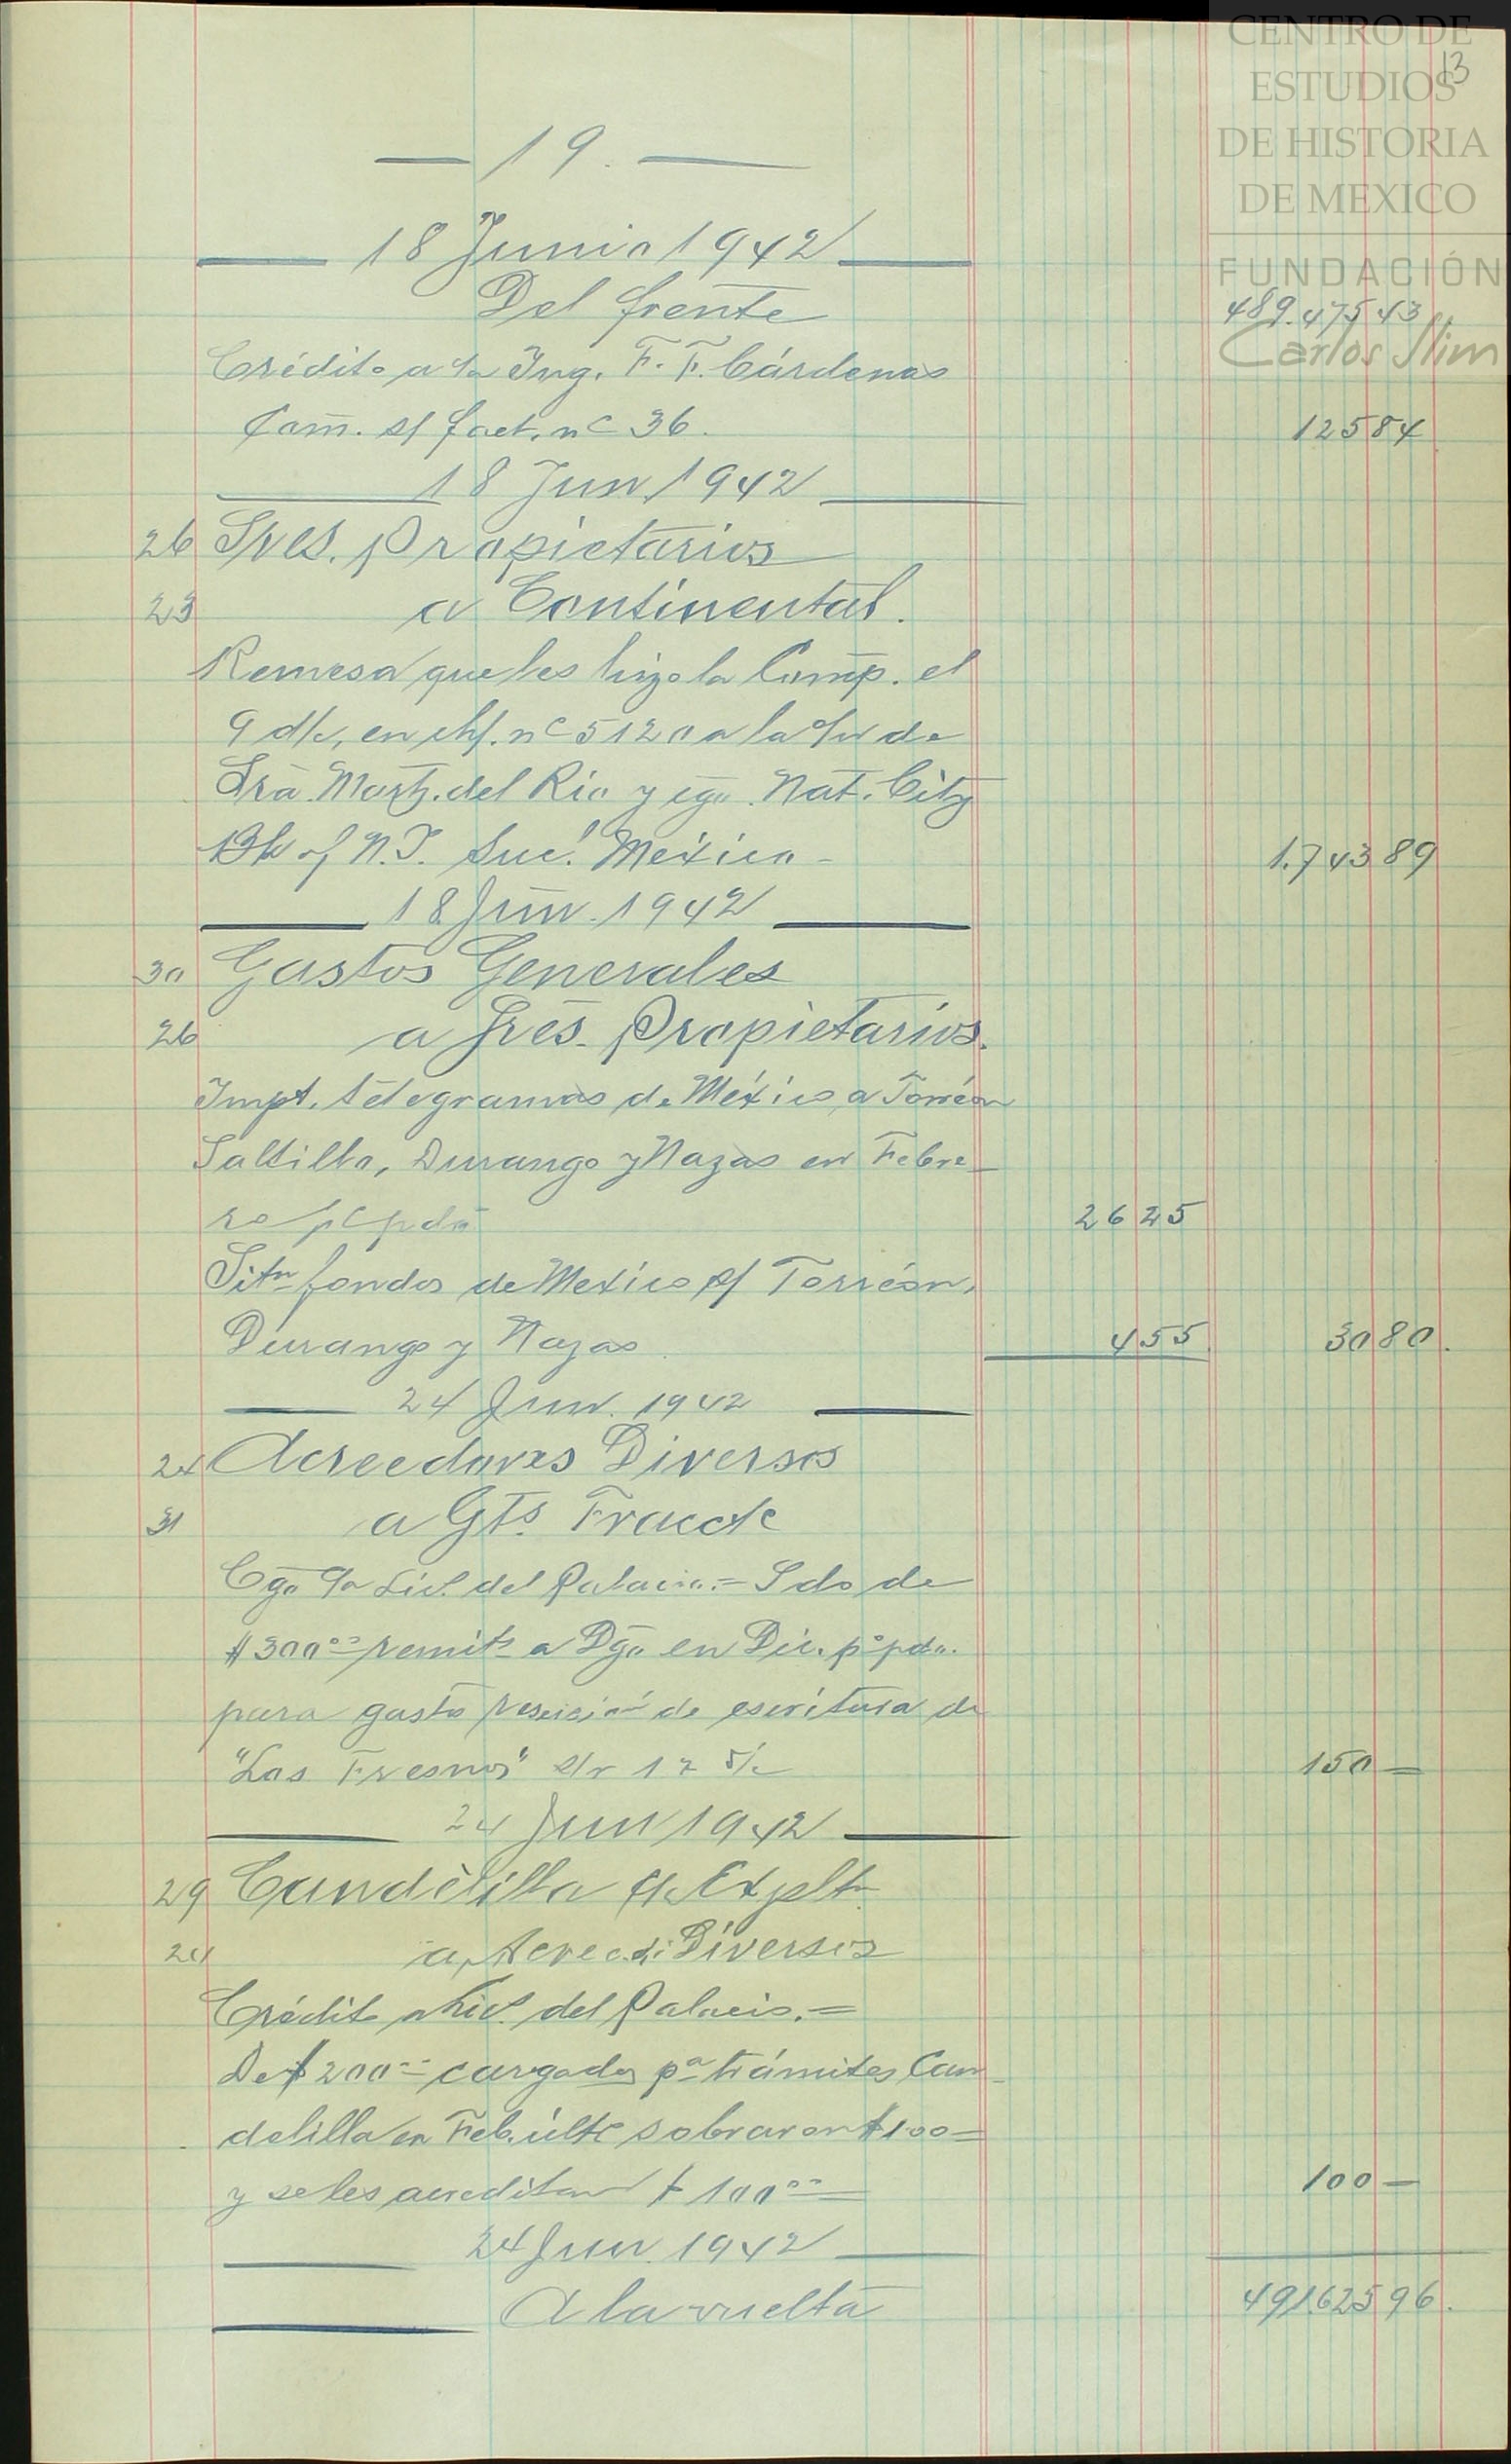 CENTRO DE
ESTUDIOS
DE HISTORIA
DE MEXICO
FUNDACIÓN
Carlos Slim
13
— 19. —
18 Junio 1942
Del frente 489.475 43
Crédito a Ing. F. F. Cárdenas
Com. s/ fact. nº 36. 125 84
18 Jun 1942
26 Sres. Propietarios
23 a Continental.
Remesa que les hizo la Comp. el
9 d/c, en ch/. nº 5120 a la o/ de
Sra. Martz. del Rio y cgo. Nat. City
Bk of N.Y. Suc. México - 1.743 89
18 Jun. 1942
30 Gastos Generales
26 a Sres. Propietarios.
Impt. telegramas de México a Torreón
Saltillo, Durango y Nazas en Febre-
ro ppdo 26 25
Sitn fondos de Mexico s/ Torreón,
Durango y Nazas. 4 55 30 80.
24 Jun. 1942
24 Acreedores Diversos
31 a Gts. Fracc
Cgo Lic. del Palacio.= Sdo de
$300.00 remit. a Dgo en Dic. ppdo.
para gasto rescición de escritura de
"Los Fresnos" 17 150 —
24 Jun 1942
29 Candelilla Explt.
24 a Acreed. Diversos
Crédito a Lic. del Palacio.=
De $200.= cargados pa trámites Can-
delilla en Feb. últº sobraron $100=
y se les acreditan $100.00 100 —
24 Jun. 1942
A la vuelta 491.625 96.